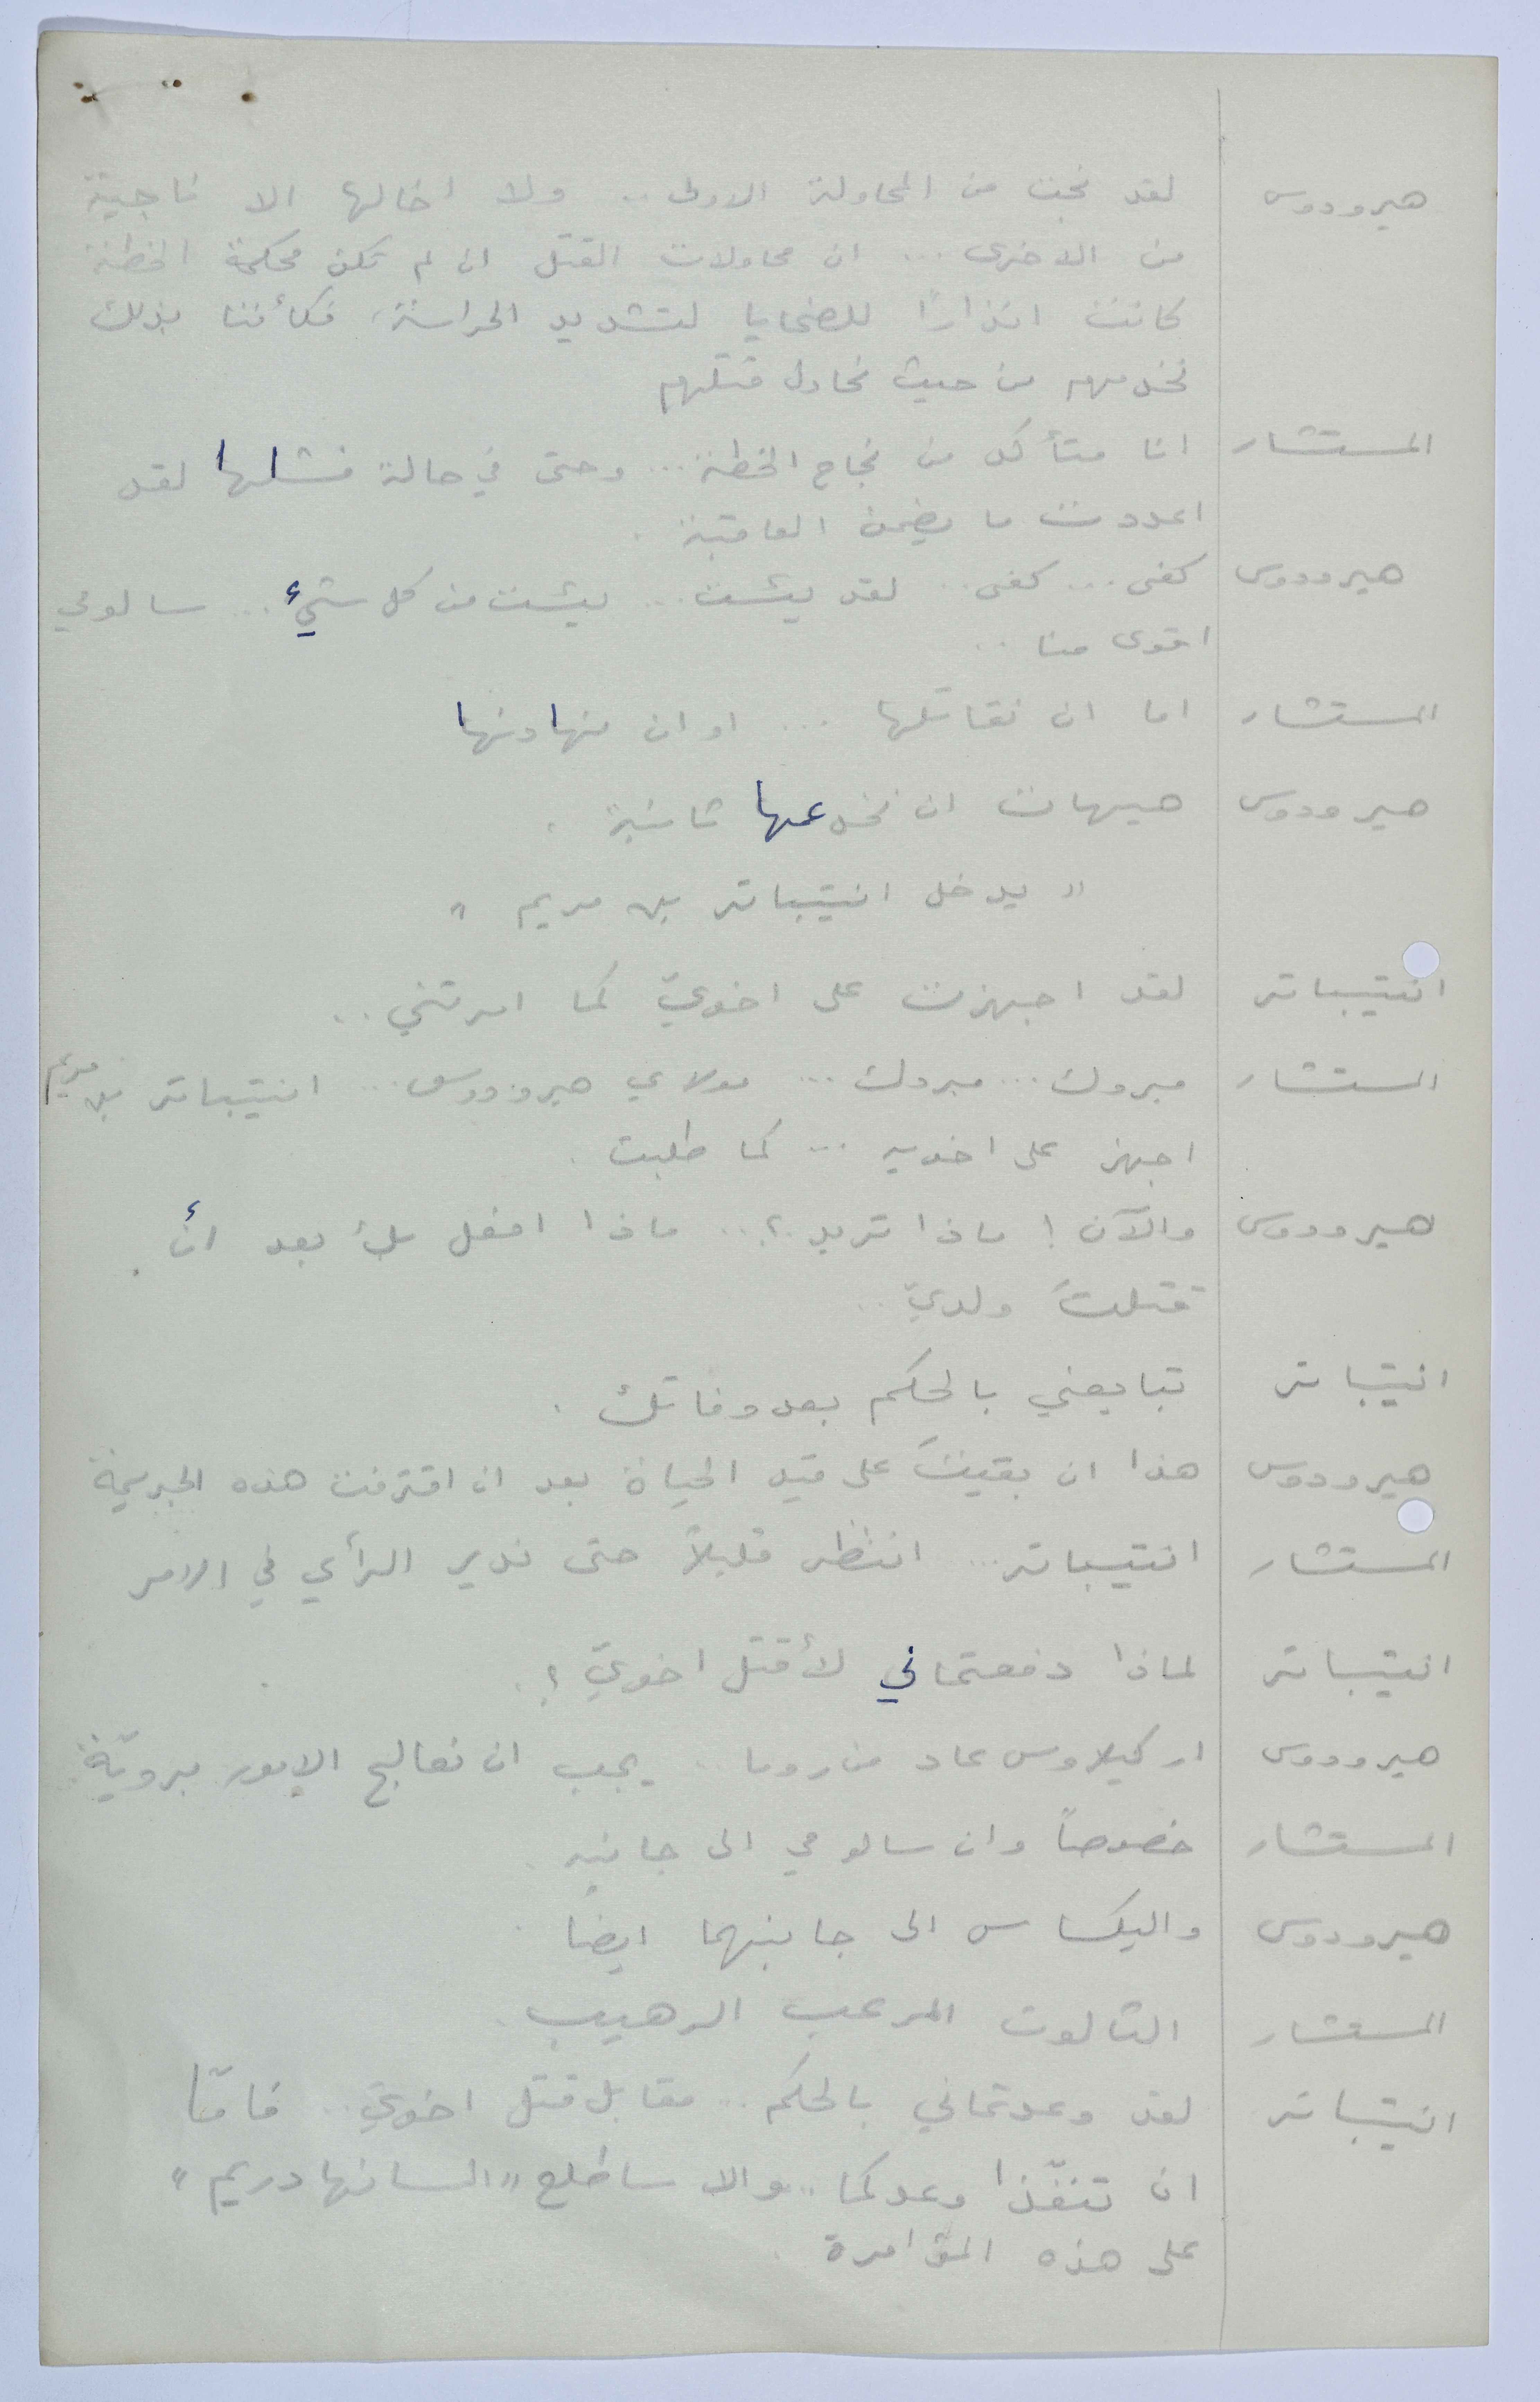 هيرودوس لقد نجت من المحاولة الاولى .. ولا اخالها الا ناجية
من الاخرى ... ان محاولات القتل ان لم تكن محكمة الخطة
كانت انذارًا للضحايا لتشديد الحراسة، فكأننا بذلك
نخدمهم من حيث نحاول قتلهم
المستشار انا متأكد من نجاح الخطة ... وحتى في حالة فشلها لقد
اعددت ما يضمن العاقبة .
هيرودوس كفى ... كفى .. لقد يئست ... يئست من كل شيء ... سالومي
اقوى منا ..
المستشار اما ان نقاتلها ... او ان نهادنها
هيرودوس هيهات ان نخدعها ثانية .
" يدخل انتيباتر بن مريم "
انتيباتر لقد اجهزت على اخويّ كما امرتني ..
المستشار مبروك ... مبروك ... مولاي هيرودوس ... انتيباتر بن مريم
اجهز على اخويه ... كما طلبت .
هيرودوس والآن ! ماذا تريد ؟ .. ماذا افعل بك بعد أن
قتلتَ ولديّ ..
انتيباتر تبايعني بالحكم بعد وفاتك .
هيرودوس هذا ان بقيتَ على قيد الحياة بعد ان اقترفت هذه الجريمة
المستشار انتيباتر ... انتظر قليلاً حتى ندير الرأي في الامر
انتيباتر لماذا دفعتماني لأقتل اخويّ ؟ .
هيرودوس اركيلاوس عاد من روما .. يجب ان نعالج الامور برويّة .
المستشار خصوصاً وان سالومي الى جانبه .
هيرودوس واليكساس الى جانبهما ايضاً .
المستشار الثالوث المرعب الرهيب .
انتيباتر لقد وعدتماني بالحكم .. مقابل قتل اخويّ .. فامّا
ان تنفّذا وعدكما .. والا ساطلع "السانهادريم"
على هذه المؤامرة .